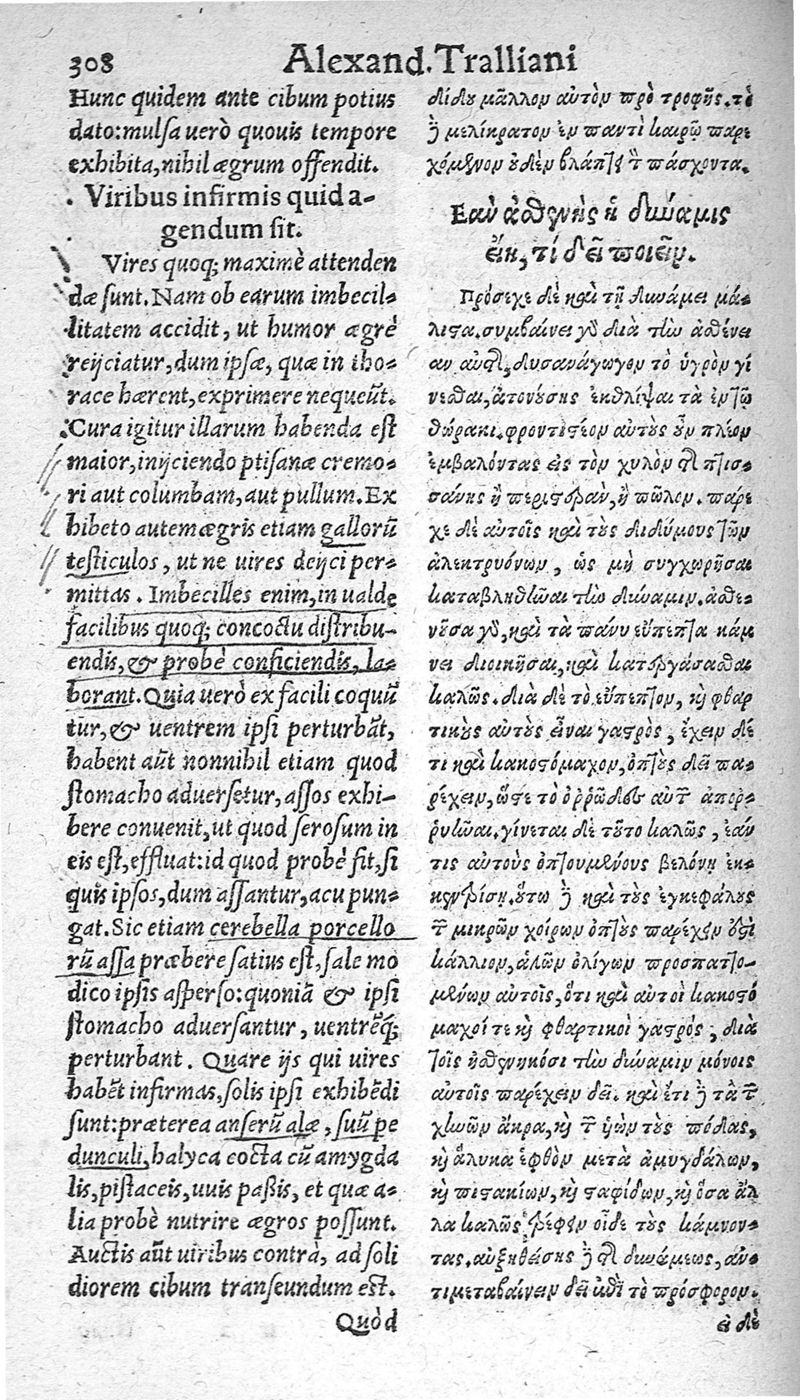 308 Alexand. Tralliani
Hunc quidem ante cibum potius
dato: mulsa uerò quouis tempore
exhibita, nihil ægrum offendit.
Viribus infirmis quid a-
gendum sit.
Vires quoq; maximè attenden
dæ sunt. Nam ob earum imbecil-
litatem accidit, ut humor ægrè
reijciatur, dum ipsæ, quæ in tho-
race hærent, exprimere nequeũt.
Cura igitur illarum habenda est
maior, inijciendo ptisanæ cremo-
ri aut columbam, aut pullum. Ex
hibeto autem ægris etiam gallorũ
testiculos, ut ne uires deijci per-
mittas. Imbecilles enim, in ualde
facilibus quoq; concoctu distribu-
endis, & probè conficiendis, la-
borant. Quia uerò ex facili coquũ
tur, & uentrem ipsi perturbãt,
habent aũt nonnihil etiam quod
stomacho aduersetur, assos exhi-
bere conuenit, ut quod serosum in
eis est, effluat: id quod probè fit, si
quis ipsos, dum assantur, acu pun-
gat. Sic etiam cerebella porcello
rũ assa præbere satius est, sale mo
dico ipsis asperso: quoniã & ipsi
stomacho aduersantur, uentrẽq;
perturbant. Quare ijs qui uires
habẽt infirmas, solis ipsi exhibẽdi
sunt: præterea anserũ alæ, suũ pe
dunculi, halyca cocta cũ amygda
lis, pistaceis, uuis passis, et quæ a-
lia probè nutrire ægros possunt.
Auctis aũt uiribus contrà, ad soli
diorem cibum transeundum est.
Quòd
δίδου μᾶλλον αὐτὸν πρὸ τροφῆς. τὸ
ἢ μελίκρατον ἐν παντὶ καιρῷ παρε
χόμενον οὐδὲν βλάπτει τ πάσχοντα.
Εὰν ἀσθενὴς ἡ δύναμις
εἴη, τί δεῖ ποιεῖν.
Πρόσεχε δὲ καὶ τῇ δυνάμει μά-
λιστα. συμβαίνει γὸ διὰ τὴν ἀσθένει
αν αὐτῆς, δυσανάγωγον τὸ ὑγρὸν γί
νεσθαι, ἀτονούσης ἐκθλίψαι τὰ ἐν τῷ
θώρακι. φροντιστέον αὐτοὺς οὖν πλέον
ἐμβαλόντας εἰς τὸν χυλὸν τῆς πτισ-
σάνης ἢ περιστερὰν, ἢ πῶλον. παρε
χε δὲ αὐτοῖς καὶ τοὺς διδύμους τῶν
ἀλεκτρυόνων, ὡς μὴ συγχωρῆσαι
καταβληθῆναι τὴν δύναμιν. ἀσθε-
νοῦσα γὸ, καὶ τὰ πάνυ εὔπεπτα κάμ
νει διοικῆσαι, καὶ κατεργάσασθαι
καλῶς. διὰ δὲ τὸ εὔπεπτον, καὶ φθαρ
τικοὺς αὐτοὺς εἶναι γαστρὸς, ἔχειν δέ
τι καὶ κακοστόμαχον, ὀπτοὺς δεῖ πα-
ρέχειν, ὥστε τὸ ὀρρῶδες αὐτῶν ἀπορ-
ρυῆναι. γίνεται δὲ τοῦτο καλῶς, ἐάν
τις αὐτοὺς ὀπτουμένους βελόνῃ ἐκ-
κεντρίσῃ. οὕτω ἢ καὶ τοὺς ἐγκεφάλους
τ μικρῶν χοίρων ὀπτοὺς παρέχειν ἐστὶ
κάλλιον, ἁλῶν ὀλίγων προσπαττο-
μένων αὐτοῖς, ὅτι καὶ αὐτοὶ κακοστό
μαχοί τε καὶ φθαρτικοὶ γαστρὸς, διὰ
τοῖς ἠσθενηκόσι τὴν δύναμιν μόνοις
αὐτοῖς παρέχειν δεῖ. καὶ ἔτι ἢ τὰ τ
χηνῶν ἄκρα, καὶ τ ὑῶν τοὺς πόδας,
καὶ ἄλυκα ἑφθὸν μετὰ ἀμυγδάλων,
καὶ πιστακίων, καὶ σταφίδων, καὶ ὅσα ἄλ
λα καλῶς τρέφειν οἶδε τοὺς κάμνον-
τας. αὐξηθείσης ἢ τῆς δυνάμεως, ἀν-
τιμεταβαίνειν δεῖ ἐπὶ τὸ πρόσφορον.
εἰ δὲ